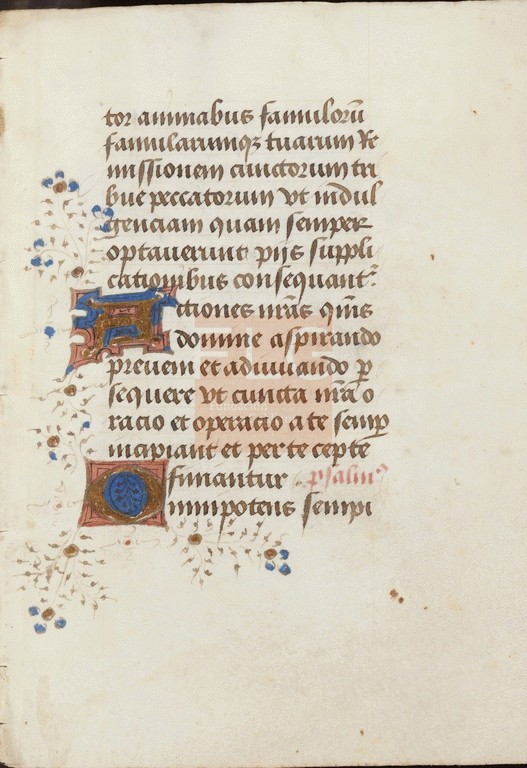 tor animabus famulorū
famularumqꝫ tuarum Re
missionem cunctorum tri
bue peccatorum vt indul
genciam quam semper
optauerunt pijs suppli
cationibus consequant᷑
Actiones nr̄as qm̄s
domine aspirando
preueni et adiuuando ꝓ
sequere vt cuncta nr̄a o
racio et operacio a te semꝑ
incipiant et per te cepte
finiantur psalm9
Omnipotens sempi